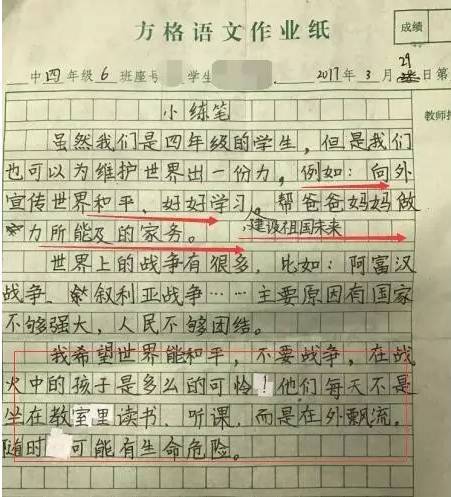 方格语文作业纸
成绩
中四年级6班座号 学生 2017年3月29日第
教师批
小练笔
虽然我们是四年级的学生,但是我们
也可以为维护世界出一份力,例如:向外
宣传世界和平、好好学习、帮爸爸妈妈做
力所能及的家务。
建设祖国未来
世界上的战争有很多,比如:阿富汉
战争、叙利亚战争……主要原因有国家
不够强大,人民不够团结。
我希望世界能和平,不要战争,在战
火中的孩子是多么的可怜!他们每天不是
坐在教室里读书、听课,而是在外飘流,
随时 可能有生命危险。